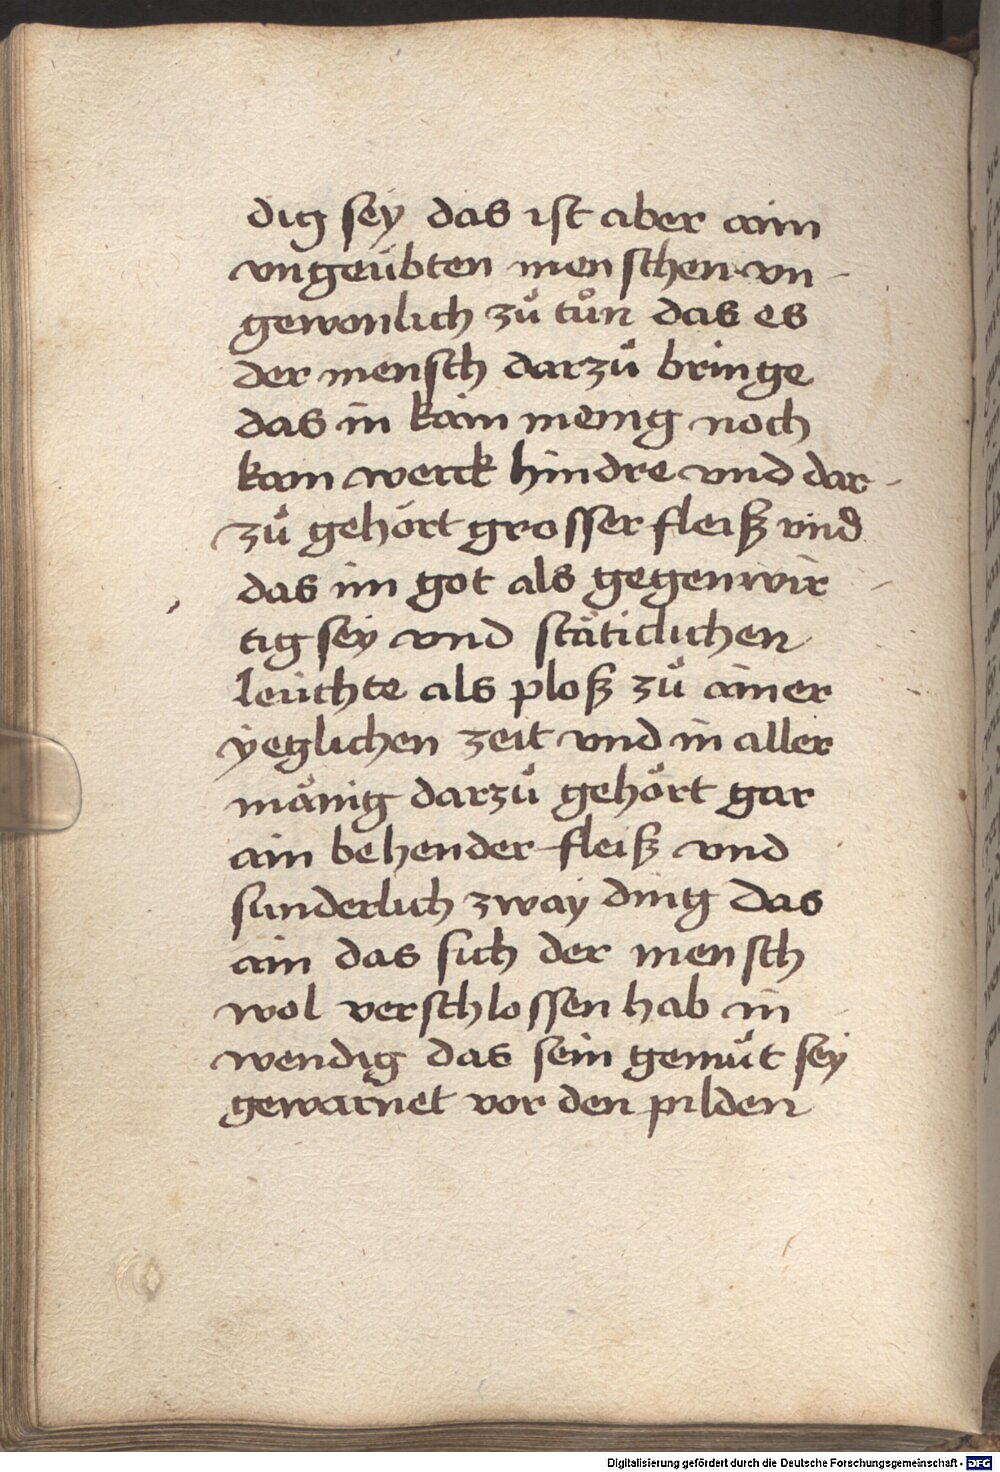 dig sey das ist aber aim
vngeübten menschen vn-
gewonlich zuͦ tuͦn das es
der mensch darzuͦ bringe
das in kain menig noch
kain werck hindre vnd dar-
zuͦ gehört grosser fleiß vnd
das im got als gegenwir-
tig sey vnd stäticlichen
leüchte als ploß zuͦ ainer
yeglichen zeit vnd in aller
mänig darzuͦ gehört gar
ain behender fleiß vnd
sunderlich zway ding Das
ain das sich der mensch
wol verschlossen hab in
wendig das sein gemuͤt sey
gewarnet vor den pilden
Digitalisierung gefördert durch die Deutsche Forschungsgemeinschaft - DFG